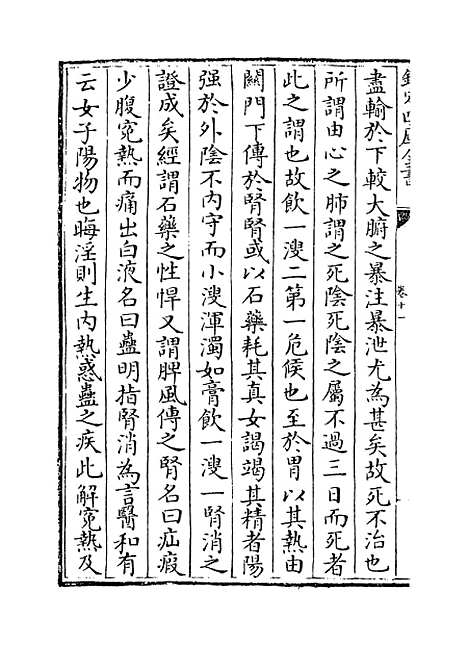 欽定四庫全書
卷十一
盡輸於下較大腑之暴注暴泄尤為甚矣故死不治也
所謂由心之肺謂之死陰死陰之屬不過三日而死者
此之謂也故飲一溲二第一危候也至於胃以其熱由
關門下傳於腎腎或以石藥耗其真女謁竭其精者陽
强於外陰不内守而小溲渾濁如膏飲一溲一腎消之
證成矣經謂石藥之性悍又謂脾風傳之腎名曰疝瘕
少腹寃熱而痛出白液名曰蠱明指腎消為言醫和有
云女子陽物也晦淫則生内熱惑蠱之疾此解寃熱及